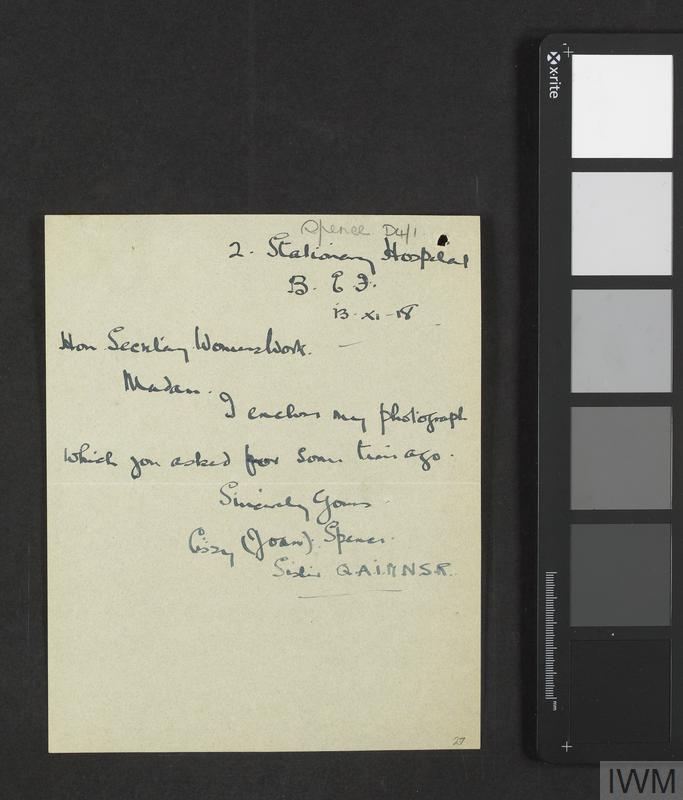 Spence D4/1
2. Stationary Hospital
B. E. F.
13-XI-18
Hon Secretary Womens Work.
Madam.
I enclose my photograph
which you asked for some time ago.
Sincerely Yours
Cissy (Joan) Spence.
Sister Q.A.I.M.N.S.R.
27
x-rite
mm
IWM